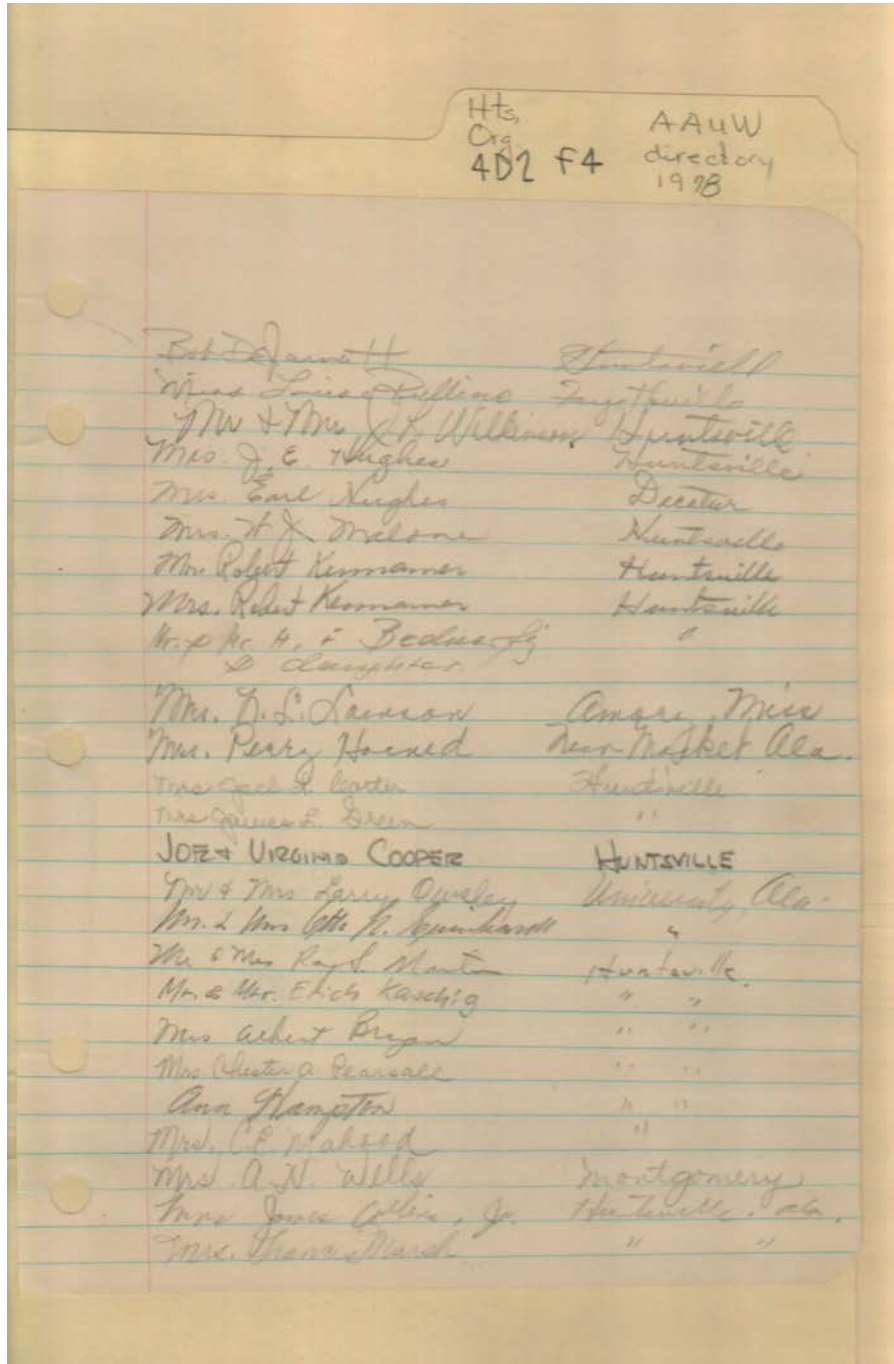 Hts,
Org.
4D2 F4
AAUW
directory
1978
Bob DeJarnett Huntsville
Miss Pullino Fayetteville
Mr & Mrs J. R. Wilkinson Huntsville
Mrs. J. E Hughes Huntsville
Mrs. Earl Hughes Decatur
Mrs. W J Malone Huntsville
Mr. Robert Kennamer Huntsville
Mrs. Robert Kennamer Huntsville
Mr. & Mr. H. "
& daughter
Mrs. D. L. Amory, Miss
Mrs. Perry Horned New Market Ala.
Mrs Jack Carter Huntsville
Mrs James L. Green "
JOE & VIRGINIA COOPER HUNTSVILLE
Mr & Mrs Larry Owsley University, Ala.
Mr. & Mrs Otto "
Mr & Mrs Ray S. Martin Huntsville.
Mr. & Mr. Erich Kaschig " "
Mrs Albert Bryan " "
Mrs Chester A Pearsall " "
Ann Hampton " "
Mrs. C E Mahood "
Mrs. A. N. Wells Montgomery
Mrs James Collins, Jr. Huntsville, Ala.
Mrs. Marsh " "